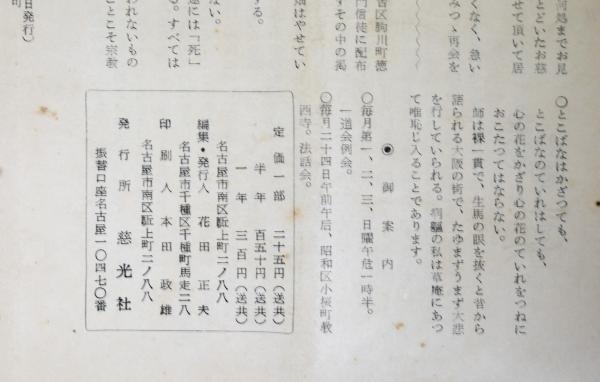 何処までお見
とどいたお慈
せて頂いて居
くなく、急い
みつゝ再会を
古区駒川町徳
門信徒に配布
すその中の渇
畑はやせてい
する。
ない。
遂には「死」
る。すべては
われないもの
ことこそ宗教
日発行)
町
〇とこばなはかざつても、
とこばなのていれはしても、
心の花をかざり心の花のていれをつねに
おこたつてはならない。
師は裸一貫で、生馬の眼を抜くと昔から
語られる大阪の街で、たゆまずうまず大悲
を行していられる。病軀の私は草庵にあつ
て唯恥じ入ることであります。
◉御案内
〇毎月第一、二、三、日曜午后一時半。
一道会例会。
〇毎月二十四日午前午后、昭和区小桜町教
西寺。法話会。
定価一部 二十五円(送共)
半年 百五十円(送共)
一年 三百円(送共)
名古屋市南区駈上町二ノ八八
編集・発行人 花田正夫
名古屋市千種区千種町馬走二八
印刷人 本田政雄
名古屋市南区駈上町二ノ八八
発行所 慈光社
振替口座名古屋一〇四七〇番